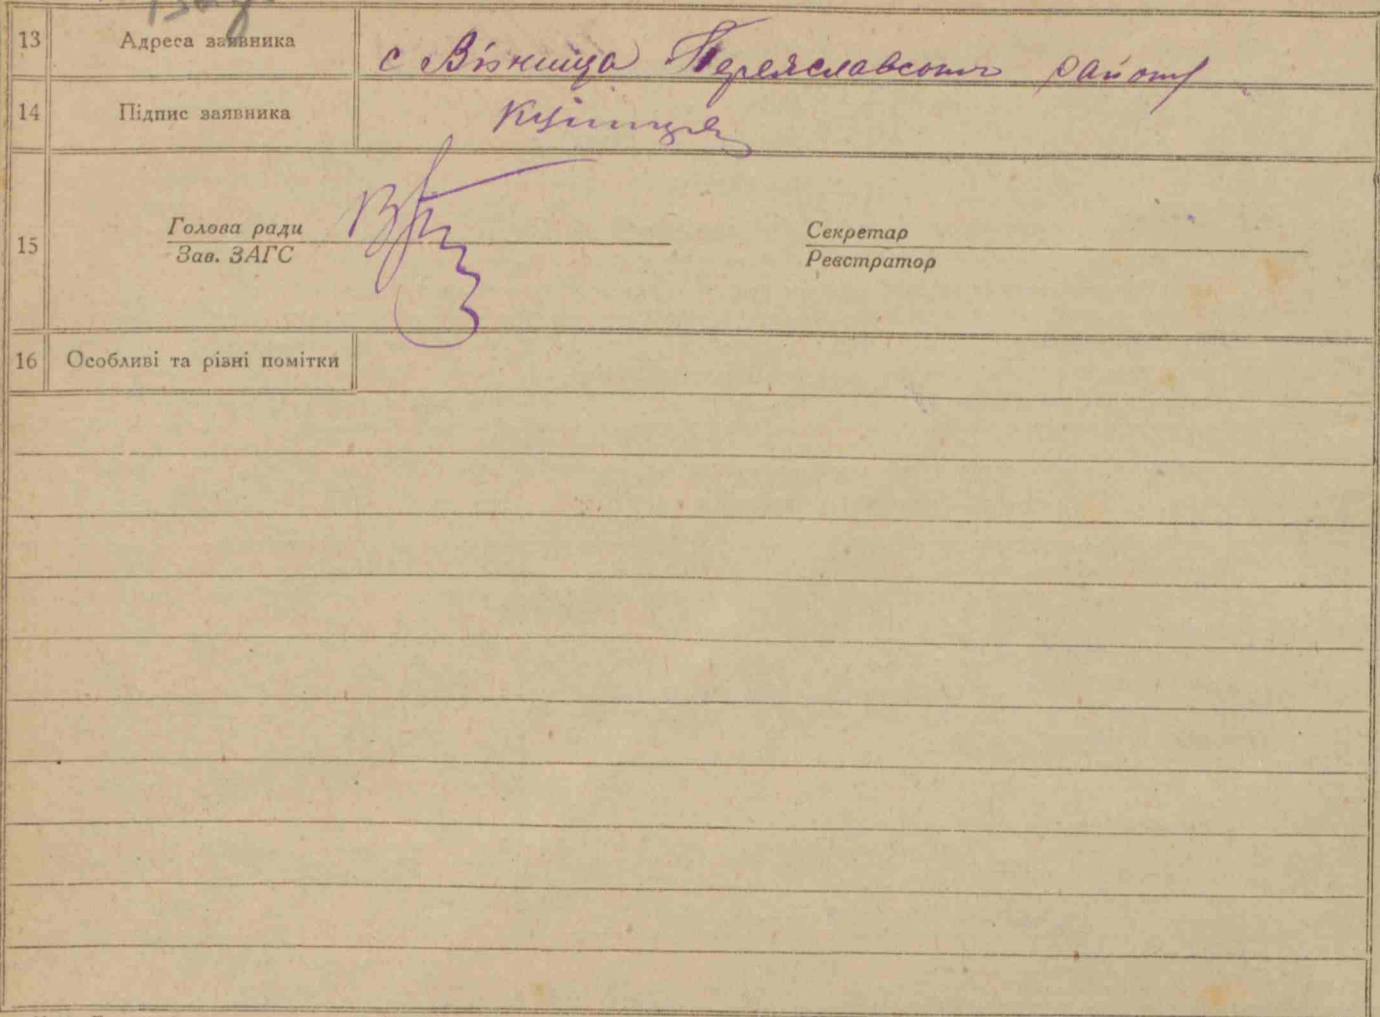 13 Адреса заявника с Візниця Переяславського району
14 Підпис заявника
15 Голова ради
Зав. ЗАГС
Секретар
Реєстратор
16 Особливі та різні помітки